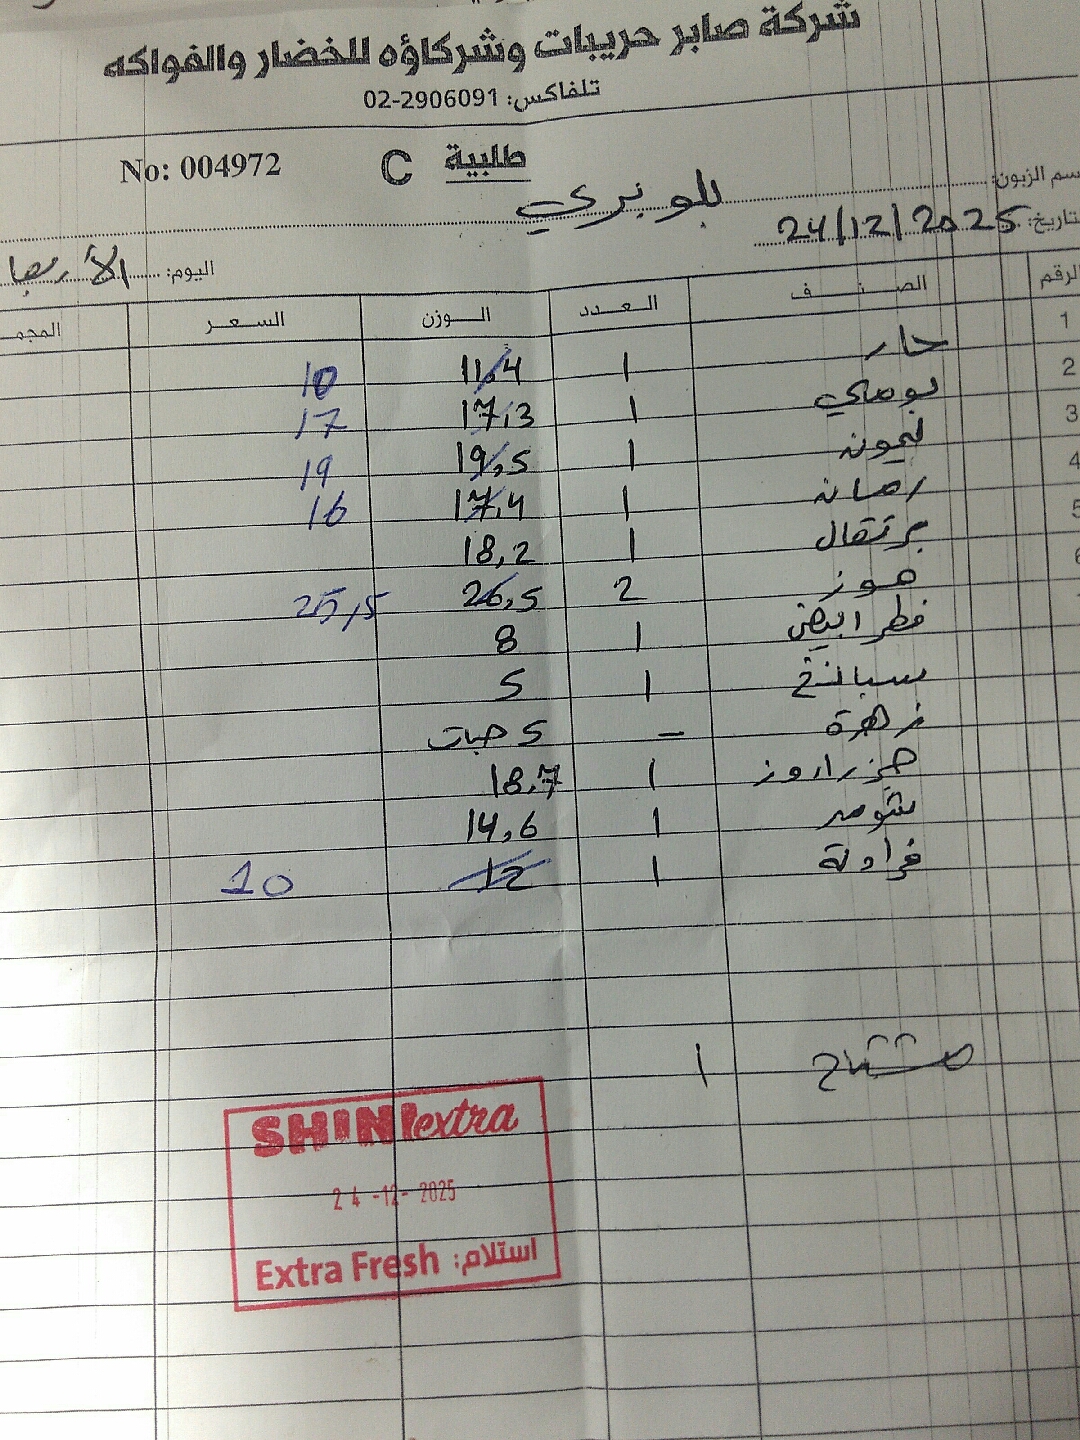 شركة صابر حريبات وشركاؤه للخضار والفواكه
تلفاكس: 02-2906091
No: 004972 C طلبية
سم الزبون: بلوبري
تاريخ: 24/12/2025
اليوم: الأربعا
الرقم الصنف العدد الوزن السعر المجم
1 حار 1 11.4 10
2 بوملي 1 17,3 17
3 ليمون 1 19,5 19
4 رمان 1 17,4 16
5 برتقال 1 18,2
6 موز 2 26,5 25,5
فطر ابيض 1 8
سبانخ 1 5
زهرة - 5 حبات
جزر اروز 1 18.7
شومر 1 14,6
فراولة 1 12 10
1
SHINI extra
24-12-2025
استلام: Extra Fresh